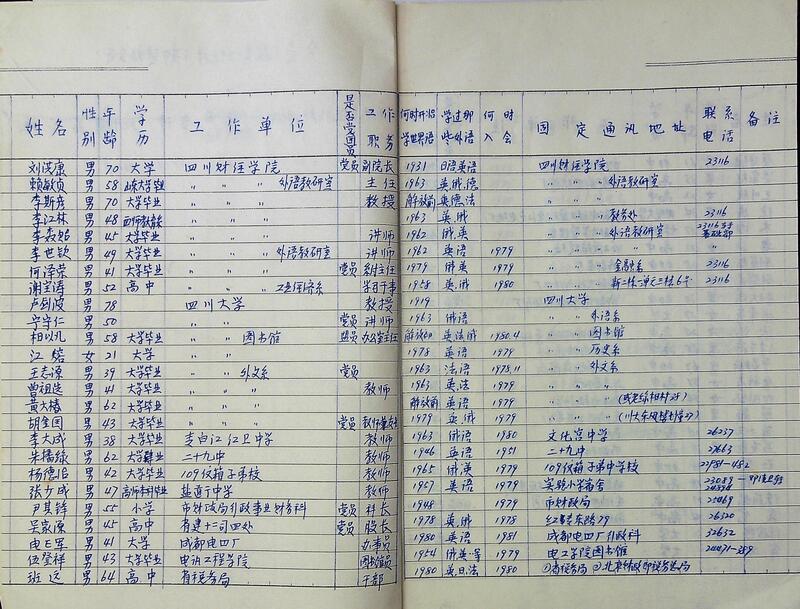 姓名 性别 年龄 学历 工作单位 是否党团员 工作职务 何时开始学世界语 学过那些外语 何时入会 固定通讯地址 联系电话 备注
男 70 大学 四川财经学院 党员 副院长 1931 日语英语 四川财经学院 23116
赖敏贞 男 58 大学毕业 〃 〃 外语教研室 主任 1963 英.俄.德 〃 〃 外语教研室
男 70 大学毕业 〃 〃 教授 解放前 英德.法 〃 〃 〃
李江林 男 48 〃 〃 1963 英.俄 〃 〃 教务处 23116
男 45 大学毕业 〃 〃 讲师 1962 俄.英 〃 〃 外语教研室 23116
李世钦 男 49 大学毕业 〃 〃 外语教研室 讲师 1962 英语 1979 〃 〃 〃 〃
何泽荣 男 41 大学毕业 〃 〃 党员 副主任 1979 俄.英 1979 〃 〃 金融系 23116
男 52 高中 〃 〃 1958 英.俄 1980 〃 〃 23116
卢剑波 男 78 四川大学 教授 1919 四川大学
宁守仁 男 50 〃 〃 党员 讲师 1963 俄语 〃 〃 外语系
男 58 大学毕业 〃 〃 图书馆 盟员 办公室主任 解放前 英.法.俄 1980.4 〃 〃 图书馆
江 女 21 大学 〃 〃 1978 英语 1979 〃 〃 历史系
王志源 男 39 大学毕业 〃 〃 外文系 党员 1963 法语 1978.11 〃 〃 外文系
曾祖选 男 41 大学毕业 〃 〃 〃 教师 1963 英.法 1979 〃 〃 〃
黄大椿 男 62 大学毕业 〃 〃 〃 解放前 英语 1979 〃 〃 〃
胡全国 男 43 大学毕业 〃 〃 〃 党员 1979 英.俄 1979 〃 〃 〃
李大成 男 38 大学毕业 李白江红卫中学 教师 1963 俄语 1980 文化宫中学 26237
朱 男 62 大学肄业 二十九中 教师 1946 英语 1951 二十九中
杨德治 男 42 大学毕业 109仪箱子弟校 教师 1965 俄英 1979 109仪箱子弟中学校
男 47 高师本科毕业 盐道街中学 教师 1957 英语 1979 实验小学宿舍
尹其 男 55 小学 市财政局行政事业财务科 党员 科长 1948 1979 市财政局 25469
吴家源 男 45 高中 省建十二司四处 党员 股长 1978 英.俄 1978 26320
男 41 大学 成都电四厂 办事员 1980 英语 1981 成都电四厂行政科 32632
伍登祥 男 43 大学毕业 电讯工程学院 图书馆员 1954 俄英.等 1979 电工学院图书馆
班远 男 64 高中 省税务局 干部 1980 英.日.法 1980 ①省税务局 ②北京财政部税务总局